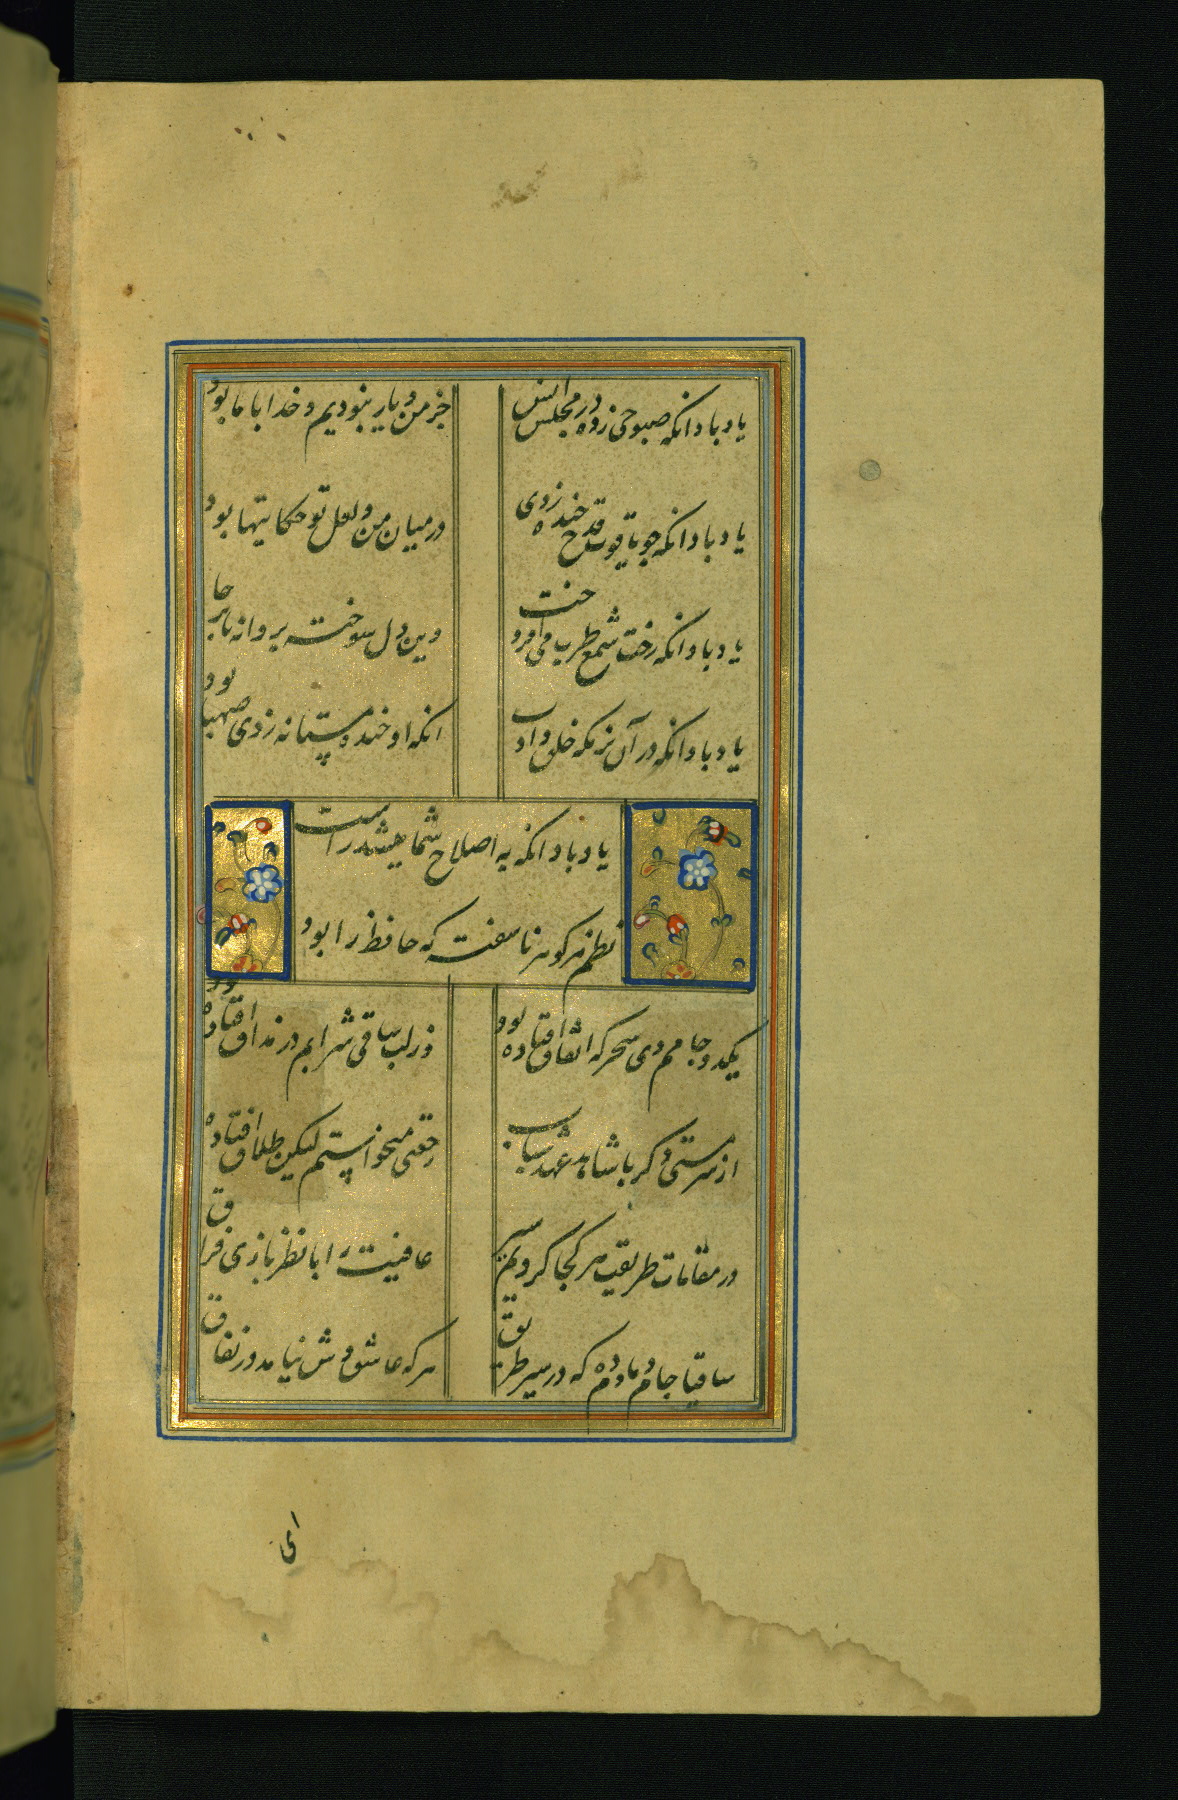 یاد باد انکه صبوحی زده در مجلس انس
جز من و یار نبودیم و خدا با ما بود
یاد باد انکه چو یاقوت قدح خنده زدی
در میان من و لعل تو حکایتها بود
یاد باد انکه رخت شمع طرب می افروخت
وین دل سوخته پروانه ناپروا بود
یاد باد انکه در آن بزمکه خلق و ادب
انکه او خنده مستانه زدی صهبا بود
یاد باد انکه به اصلاح شما میشد راست
نظم هر کوهر ناسفته که حافظ را بود
یکدو جامم دی سحرکه اتفاق افتاده بود
وز لب ساقی شرابم در مذاق افتاده بود
از سر مستی دکر با شاهد عهد شباب
رجعتی میخواستم لیکن طلاق افتاده بود
در مقامات طریقت هر کجا کردیم سیر
عافیت را با نظر بازی فراق افتاده
ساقیا جام دمادم ده که در سیر طریق
هر که عاشق وش نیامد در نفاق
ای